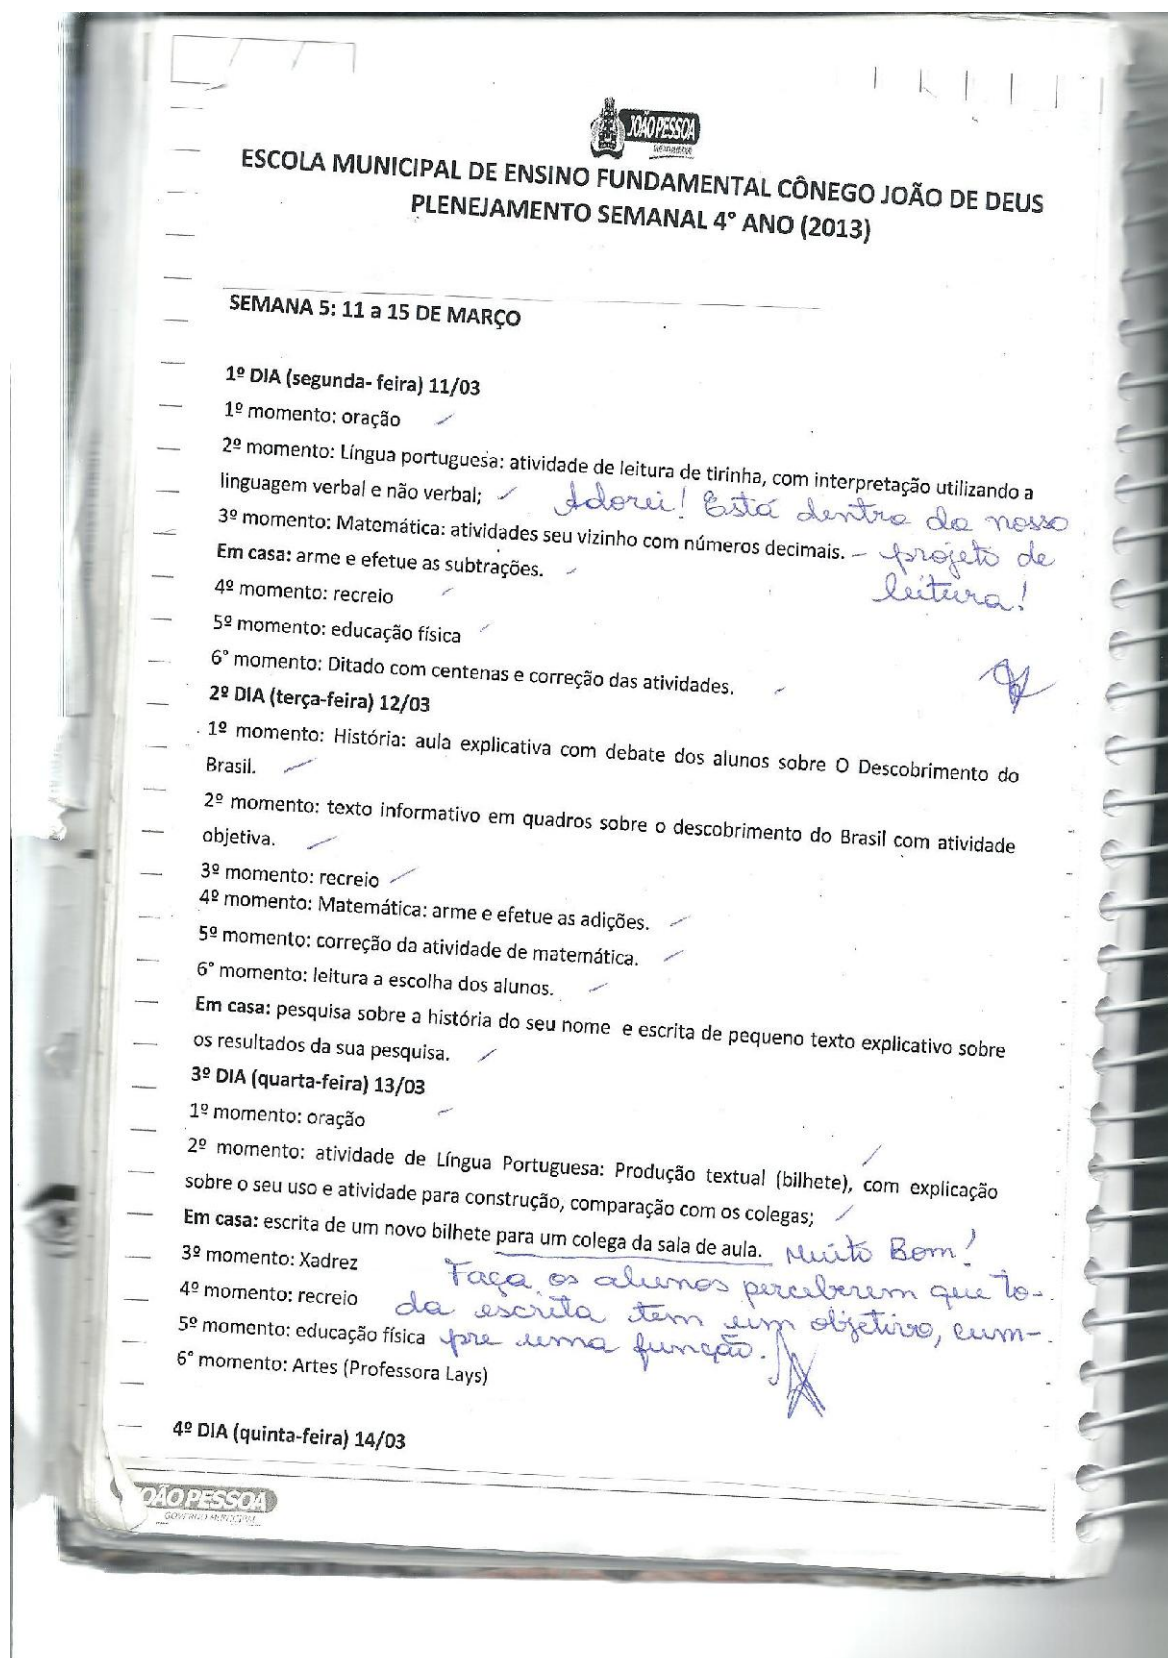 JOÃO PESSOA
ESCOLA MUNICIPAL DE ENSINO FUNDAMENTAL CÔNEGO JOÃO DE DEUS
PLENEJAMENTO SEMANAL 4° ANO (2013)
SEMANA 5: 11 a 15 DE MARÇO
1º DIA (segunda- feira) 11/03
1º momento: oração
2º momento: Língua portuguesa: atividade de leitura de tirinha, com interpretação utilizando a
linguagem verbal e não verbal; Adorei! Está dentro do nosso
3º momento: Matemática: atividades seu vizinho com números decimais. – projeto de
Em casa: arme e efetue as subtrações. leitura!
4º momento: recreio
5º momento: educação física
6° momento: Ditado com centenas e correção das atividades.
2º DIA (terça-feira) 12/03
1º momento: História: aula explicativa com debate dos alunos sobre O Descobrimento do
Brasil.
2º momento: texto informativo em quadros sobre o descobrimento do Brasil com atividade
objetiva.
3º momento: recreio
4º momento: Matemática: arme e efetue as adições.
5º momento: correção da atividade de matemática.
6° momento: leitura a escolha dos alunos.
Em casa: pesquisa sobre a história do seu nome e escrita de pequeno texto explicativo sobre
os resultados da sua pesquisa.
3º DIA (quarta-feira) 13/03
1º momento: oração
2º momento: atividade de Língua Portuguesa: Produção textual (bilhete), com explicação
sobre o seu uso e atividade para construção, comparação com os colegas;
Em casa: escrita de um novo bilhete para um colega da sala de aula. Muito Bom!
3º momento: Xadrez Faça os alunos perceberem que to-
4º momento: recreio da escrita tem um objetivo, cum-
5º momento: educação física pre uma função.
6° momento: Artes (Professora Lays)
4º DIA (quinta-feira) 14/03
JOÃO PESSOA
GOVERNO MUNICIPAL